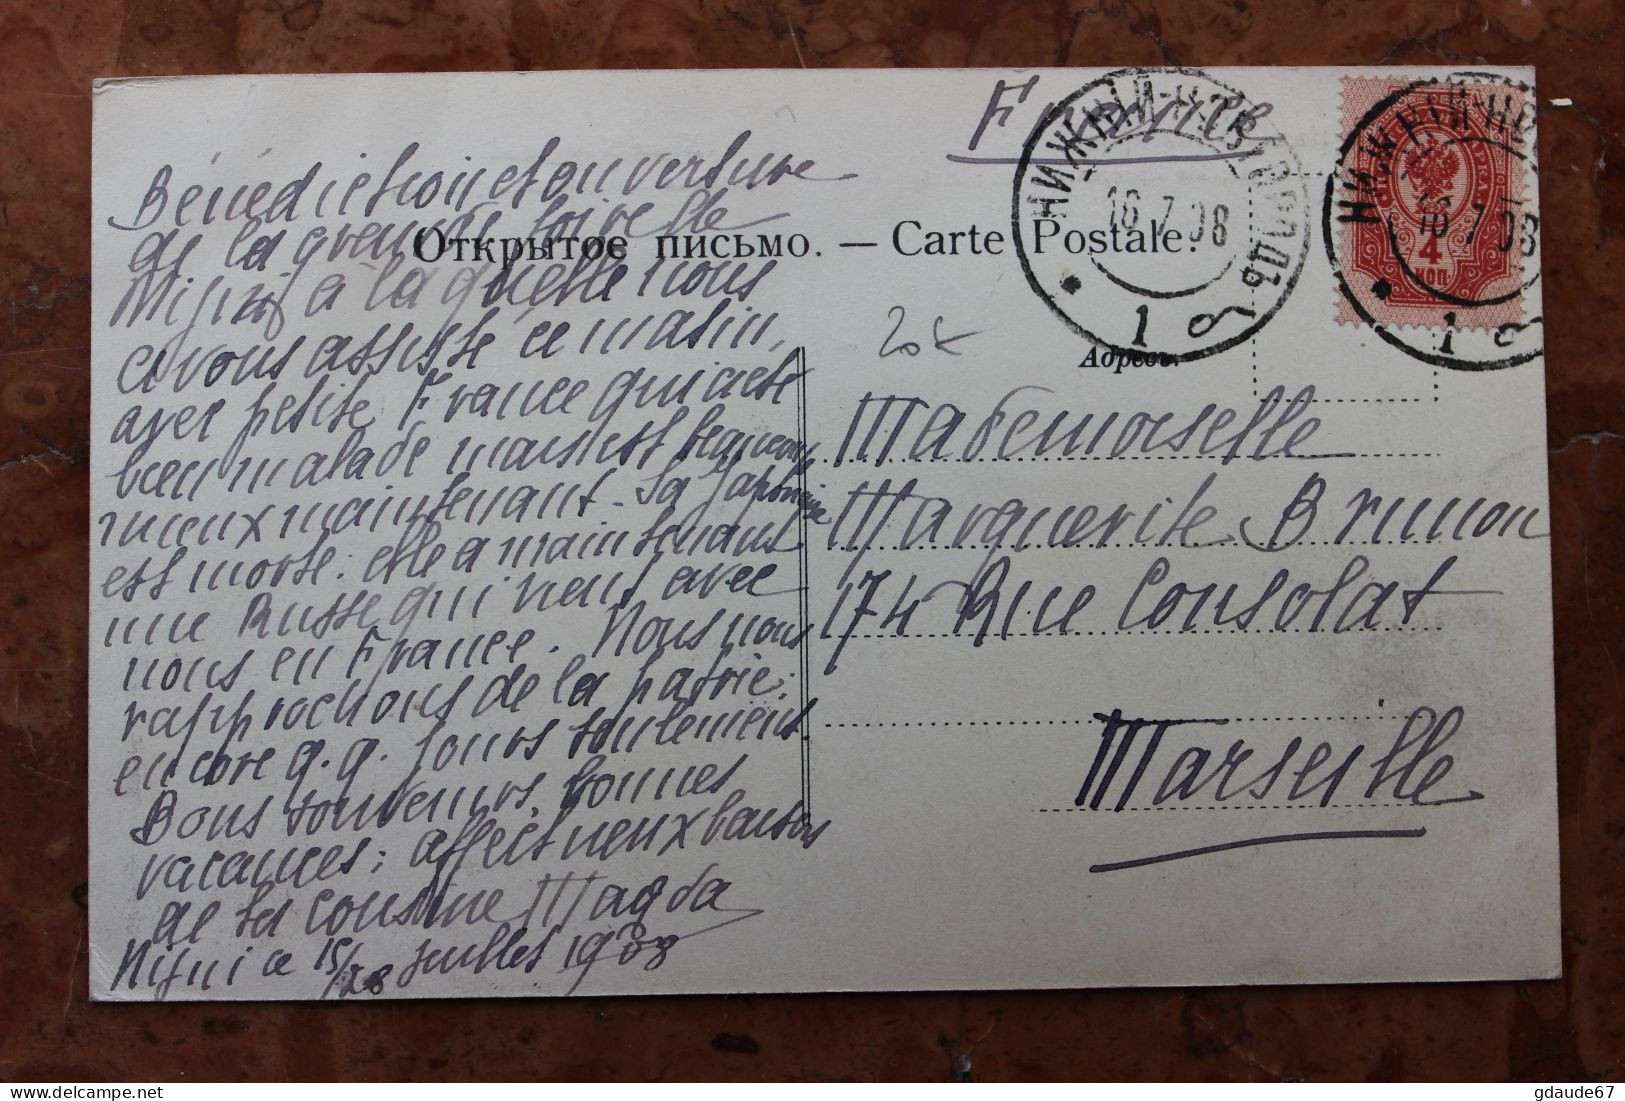 France
Bénédiction et ouverture
de la grande foire de
Nijni à laquelle nous
avons assisté ce matin,
avec petite France qui a été
bien malade mais est beaucoup
mieux maintenant. Sa Japonaise
est morte. elle a maintenant
une Russe qui vient avec
nous en France. Nous nous
rapprochons de la patrie:
encore q.q. jours seulement.
Bons souvenirs, bonnes
vacances; affectueux baisers
de ta cousine Magda
Nijni ce 15/28 juillet 1908
Открытое письмо. — Carte Postale.
НИЖНІЙ-НОВГОРОДЪ
16 7 08
1
НИЖНІЙ-НО
16 7 08
1
4
КОП.
20€
Адресъ.
Mademoiselle
Marguerite Brunon
174 Rue Consolat
Marseille
gdaude67